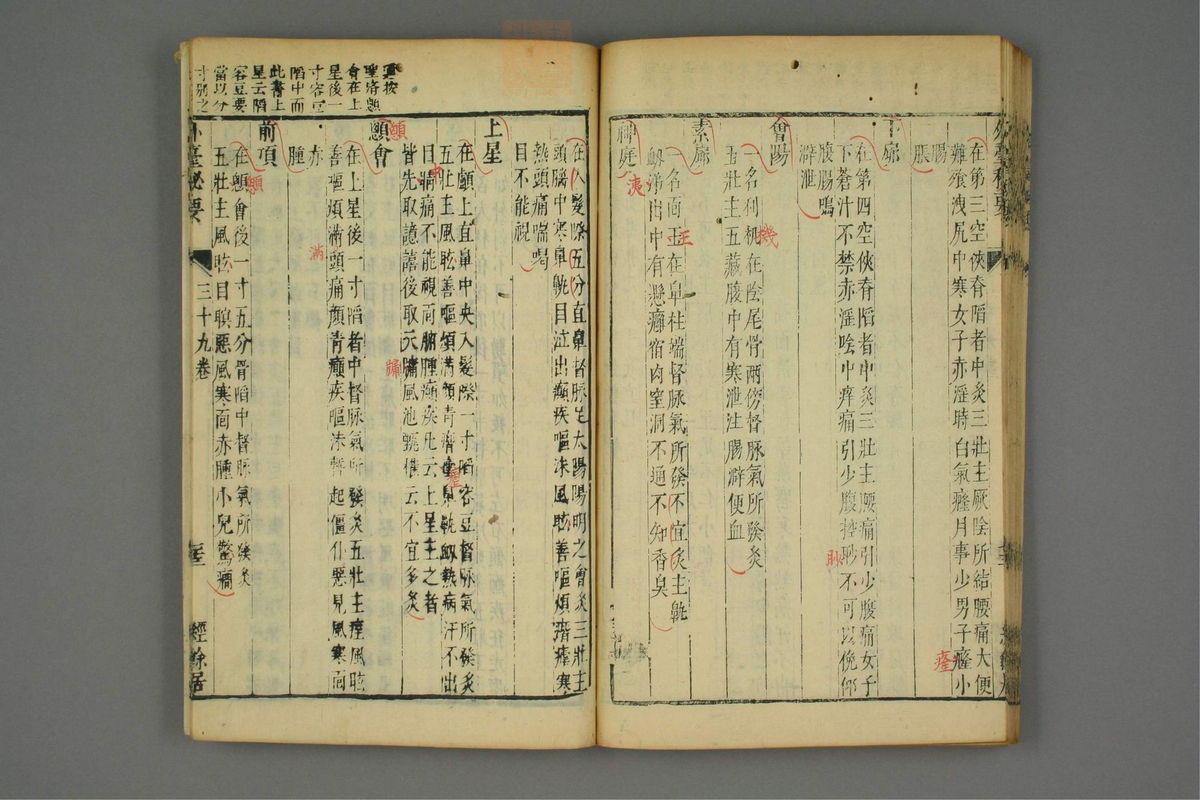 在第三空俠脊䧟者中灸三壯主厥陰所結腰痛大便
難飱洩尻中寒女子赤淫時白氣癃月事少男子癃小
腸
脹
下窌
在第四空俠脊䧟者中灸三壯主腰痛引少腹痛女子
下蒼汁不禁赤淫陰中痒痛引少腹控䏚不可以俛仰
腹腸鳴
澼泄
會陽
一名利机在陰尾骨兩傍督脉氣所發灸
五壯主五藏腹中有寒泄注腸澼便血
素窌
一名面王在鼻柱端督脉氣所發不宜灸主鼽
衂洟出中有懸癰宿肉窒洞不通不知香臭
神庭
在入髮際五分直鼻督脉足太陽陽明之會灸三壯主
頭腦中寒鼻鼽目泣出癲疾嘔沫風眩善嘔煩滿瘧寒
熱頭痛喘喝
目不能視
上星
在顱上直鼻中央入髮際一寸䧟容豆督脉氣所發灸
五壯主風眩善嘔煩滿顏青痟瘧鼻鼽衂熱病汗不出
目睛痛不能視面胕腫癲疾凡云上星主之者
皆先取譩譆後取天牖風池甄權云不宜多灸
顖會
在上星後一寸䧟者中督脉氣所發灸五壯主痙風眩
善嘔煩滿頭痛顏青癲疾嘔沫暫起僵仆惡見風寒面
赤
腫
前項
在顖會後一寸五分骨䧟中督脉氣所發灸
五壯主風眩目瞑惡風寒面赤腫小兒驚癇
外臺秘要
三十九卷
經餘居
聖濟顖
會在上
星後一
寸容豆
䧟中而
此書上
星云䧟
容豆要
當以分
寸別之
瘧
䏚
機
王
洟
顖
中
牖
滿
顖